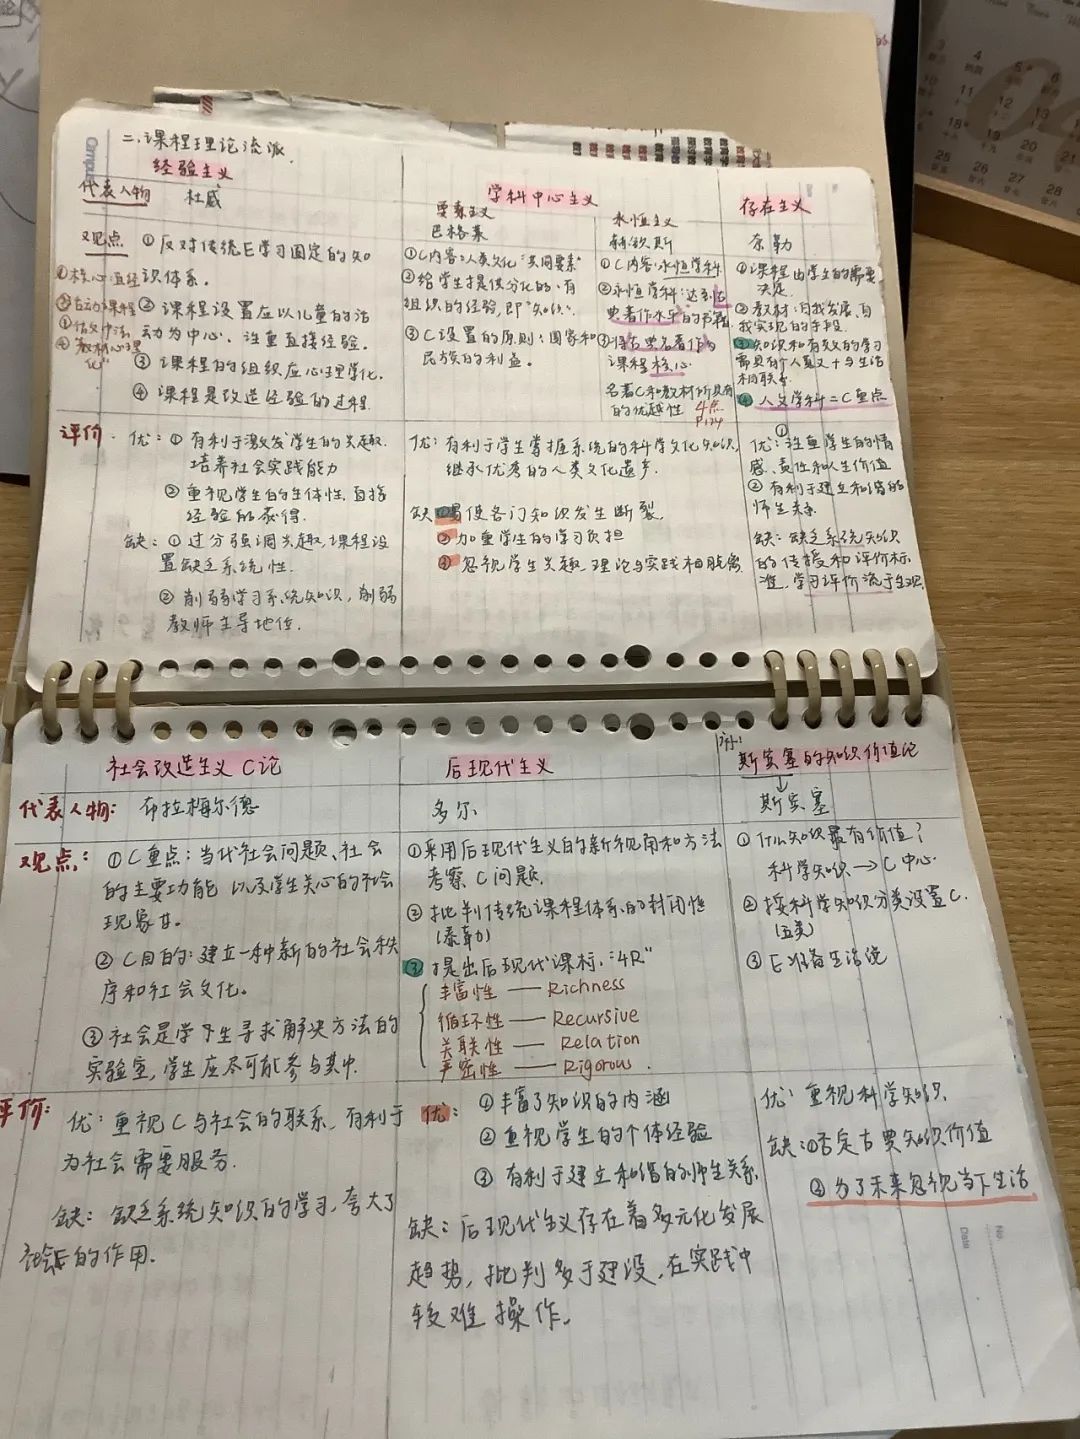 二、课程理论流派.
经验主义
代表人物 杜威
观点 ① 反对传统E学习固定的知
识体系.
② 课程设置应以儿童的活
动为中心、注重直接经验.
③ 课程的组织应心理学化.
④ 课程是改造经验的过程.
①核心:直经
②主动课程
④教材心理
化
学科中心主义
要素主义
巴格莱
①C内容:人类文化"共同要素"
②给学生提供分化的、有
组织的经验,即"知识".
③C设置的原则:国家和
民族的利益.
永恒主义
赫钦斯
①C内容:永恒学科
②永恒学科:达到古
典著作水平的书籍
③将古典名著作为
课程核心
名著C和教材所具有
的优越性 4点
P124
存在主义
奈勒
①课程由学生的需要
决定.
②教材:自我发展、自
我实现的手段.
③知识和有效的学习
需具有个人意义+与生活
相联系.
④人文学科=C重点
评价: 优:① 有利于激发学生的兴趣.
培养社会实践能力
② 重视学生的主体性、直接
经验的获得.
缺:① 过分强调兴趣,课程设
置缺乏系统性.
② 削弱学习系统知识,削弱
教师主导地位.
优:有利于学生掌握系统的科学文化知识,
继承优秀的人类文化遗产.
缺:①易使各门知识发生断裂.
②加重学生的学习负担
③忽视学生兴趣、理论与实践相脱离.
①
优:注重学生的情
感、责任和人生价值
②有利于建立和谐的
师生关系.
缺:缺乏系统知识
的传授和评价标
准,学习评价流于主观.
社会改造主义C论
代表人物: 布拉梅尔德
观点: ①C重点:当代社会问题、社会
的主要功能 以及学生关心的社会
现象等.
②C目的:建立一种新的社会秩
序和社会文化.
③社会是学生寻求解决方法的
实验室,学生应尽可能参与其中.
评价: 优:重视C与社会的联系,有利于
为社会需要服务.
缺:缺乏系统知识的学习,夸大了
社会E的作用.
后现代主义
多尔
①采用后现代主义的新视角和方法
考察C问题.
②批判传统课程体系的封闭性
(泰勒)
③提出后现代课标:"4R"
丰富性 —— Richness
循环性 —— Recursive
关联性 —— Relation
严密性 —— Rigorous.
优: ①丰富了知识的内涵
②重视学生的个体经验
③有利于建立和谐的师生关系.
缺:后现代主义存在着多元化发展
趋势,批判多于建设,在实践中
较难操作.
补:
斯宾塞的知识价值论
斯宾塞
①什么知识最有价值?
科学知识→C中心.
②按科学知识分类设置C.
(五类)
③E准备生活说
优:重视科学知识.
缺:①否定古典知识价值
②为了未来忽视当下生活
No
Date
Campus